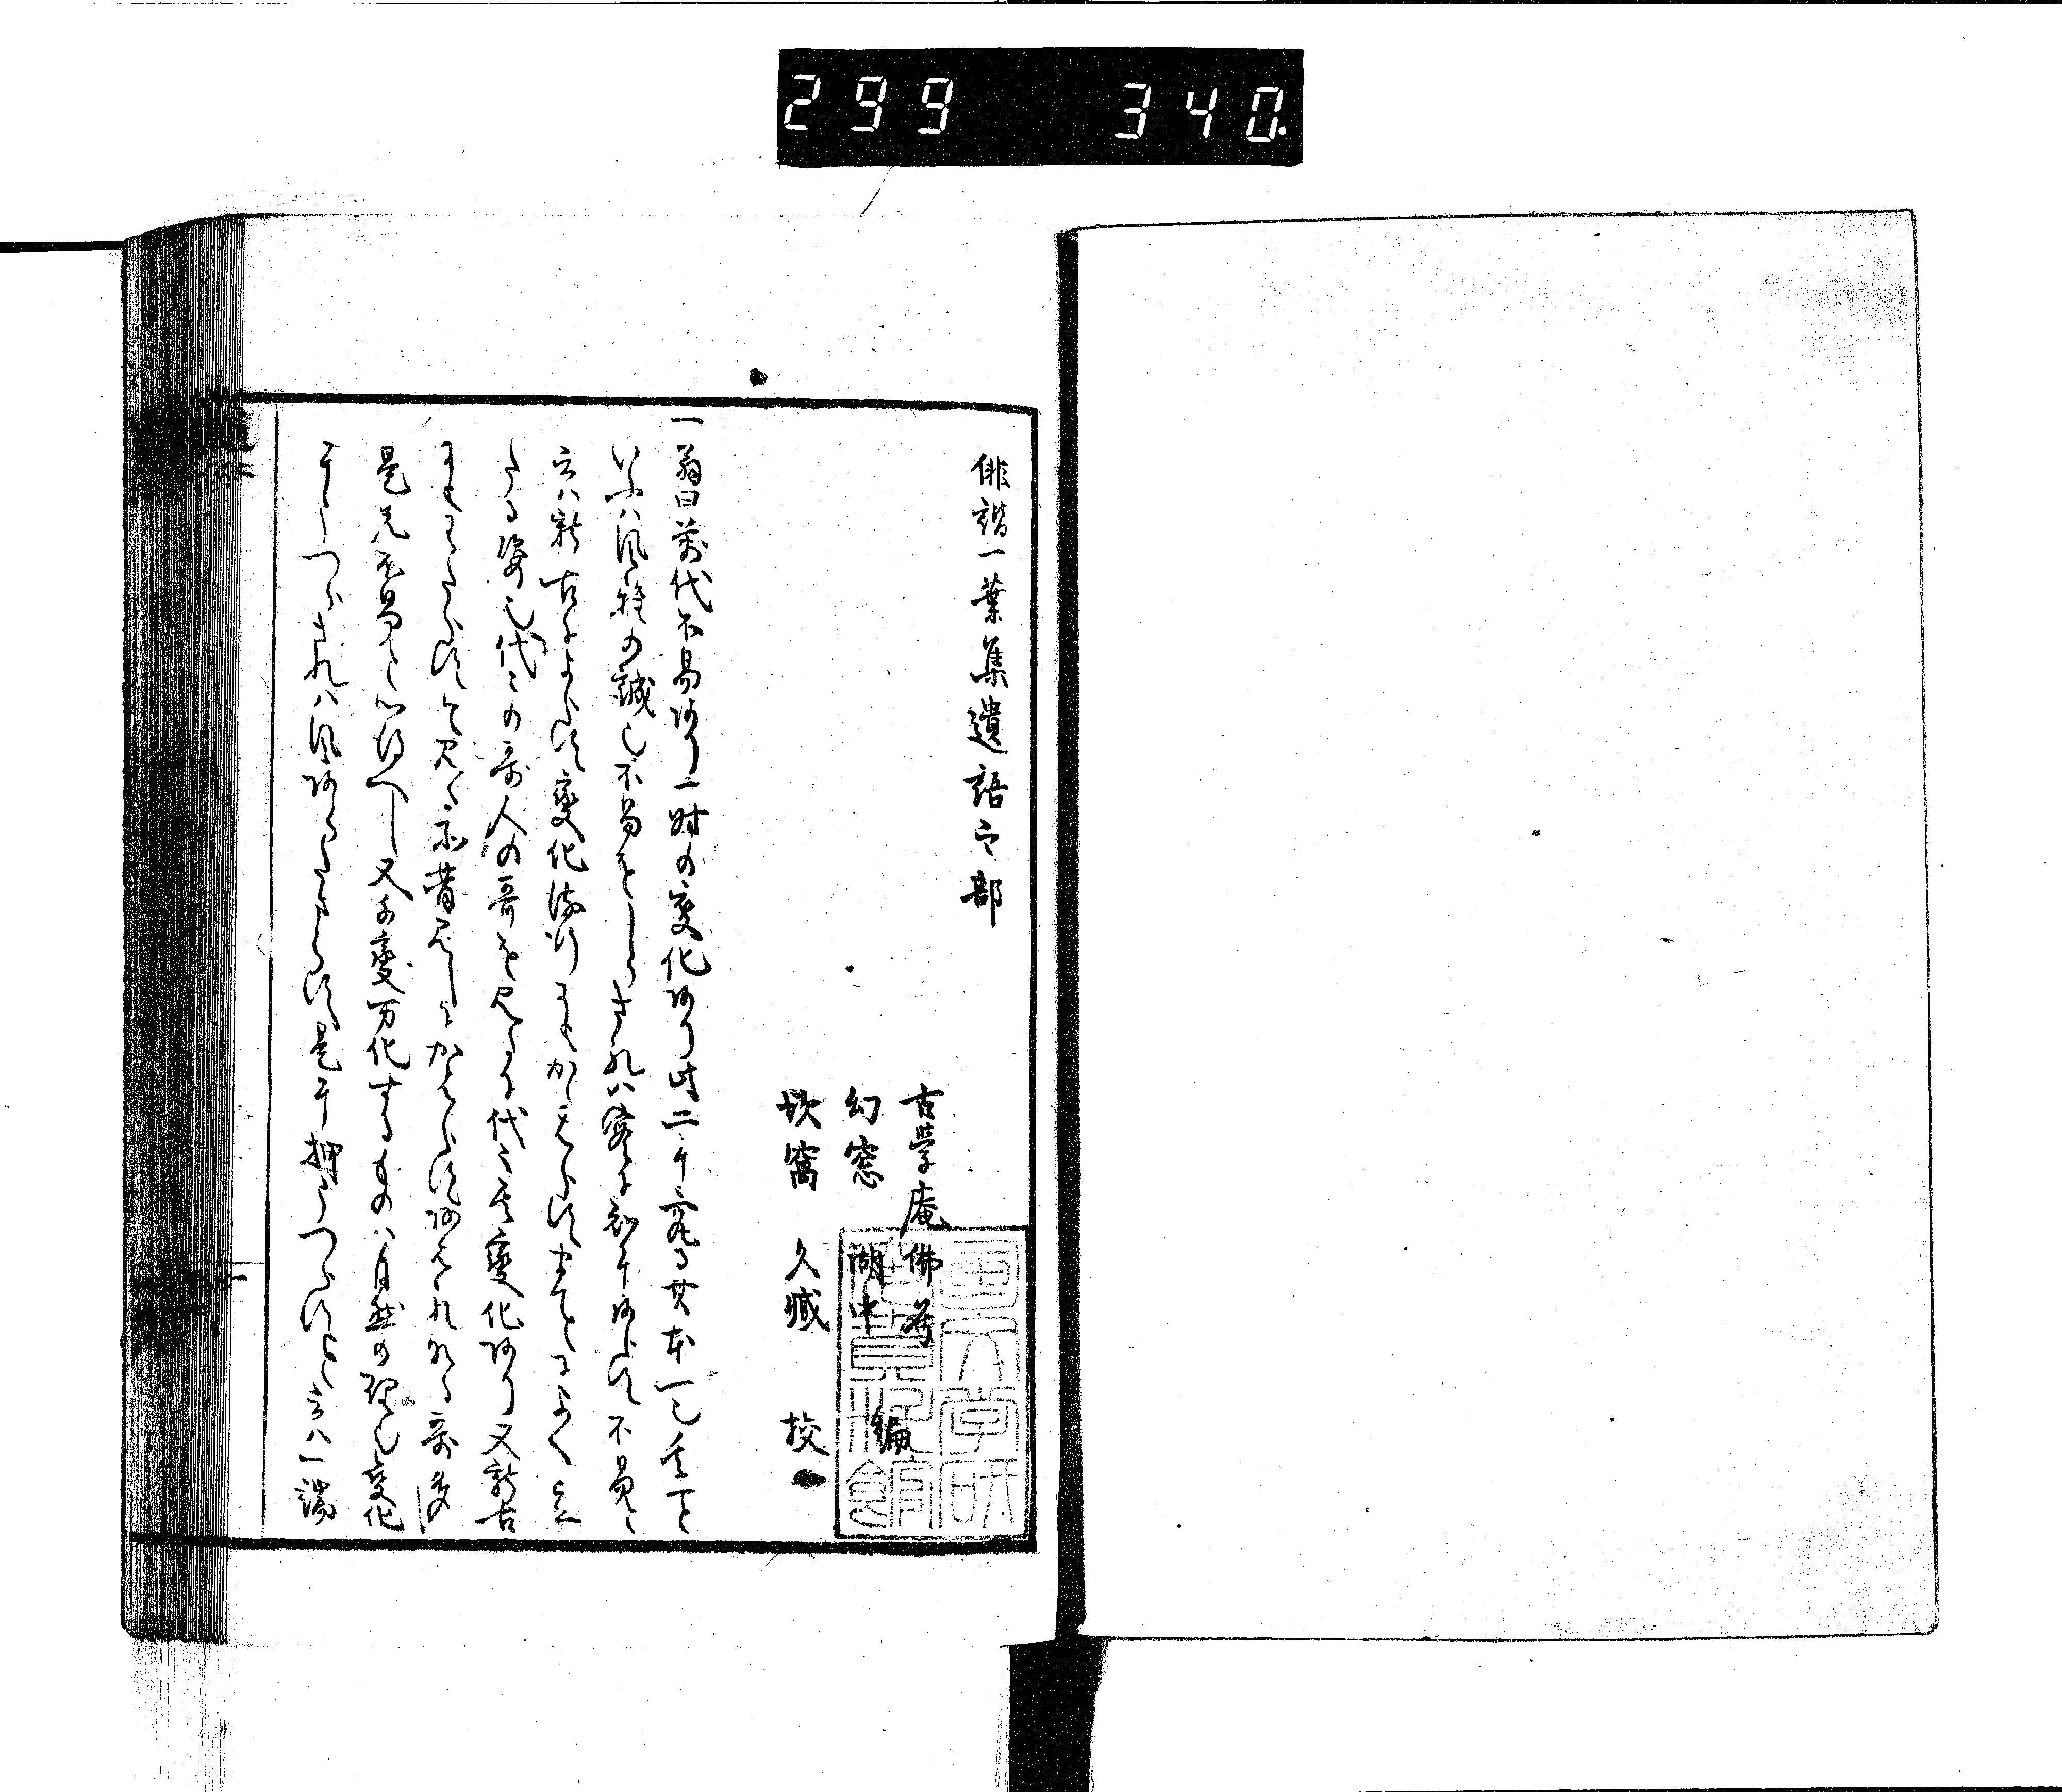 299 340
俳諧一葉集遺語之部
古學庵佛兮
幻窓 湖中 編
坎窩 久臧 校
一翁曰萬代不易あり一時の変化あり此二ツに究る其本一也其一と
いふハ風雅の誠也不易をしらされハ実に知れるにあらす不易と
云ハ新古によらす變化流行にもかゝはらす まことによく立
たる姿也代々の哥人の哥を見るに代々其變化あり又新古
にもわたらす今見る所昔見しにかはらすあはれなる哥多し
是先不易と心得へし又千變万化するものハ自然の理也変化
にうつらされハ風あらたまらす是に押うつらすと云ハ一端